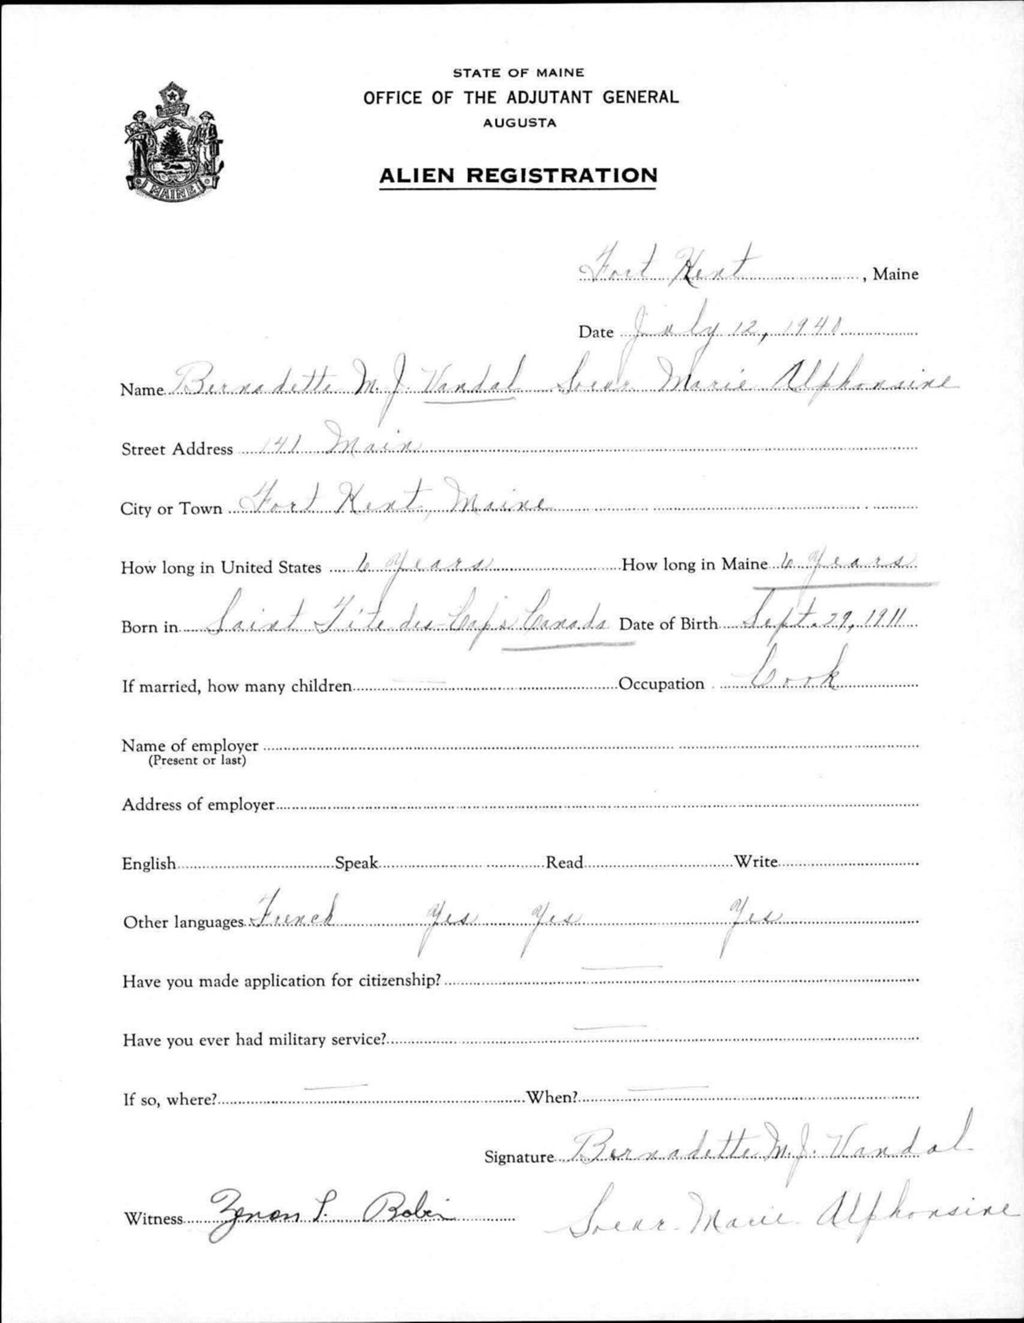 STATE OF MAINE
OFFICE OF THE ADJUTANT GENERAL
AUGUSTA
ALIEN REGISTRATION
MAINE
Fort Kent, Maine
Date July 12, 1940
Name Bernadette M. J. Vandal Soeur Marie Alphonsine
Street Address 141 Main
City or Town Fort Kent, Maine
How long in United States 6 Years How long in Maine 6 Years
Born in Saint Tite des Caps Canada Date of Birth Sept. 29, 1911
If married, how many children — Occupation Cook
Name of employer
(Present or last)
Address of employer
English Speak Read Write
Other languages French Yes Yes Yes
Have you made application for citizenship? —
Have you ever had military service? —
If so, where? — When? —
Signature Bernadette M. J. Vandal
Witness Zenon P. Robin Soeur Marie Alphonsine